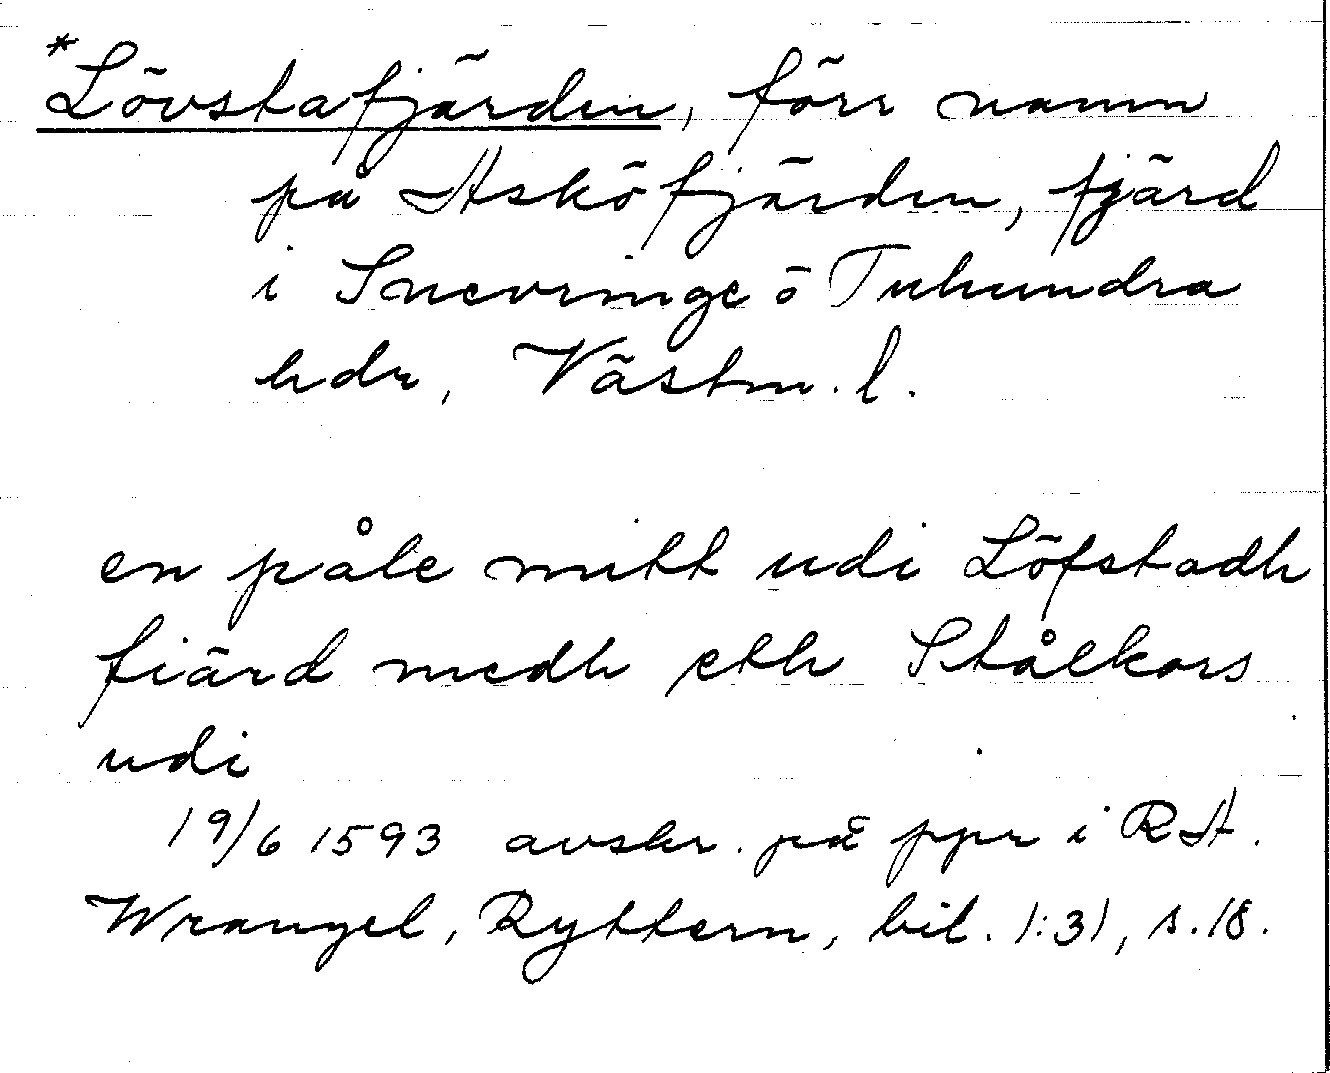 *Lövstafjärden, förr namn
på Asköfjärden, fjärd
i Snevringe o Tuhundra
hdr, Västm. l.
en påle mitt udi Löfstadh
fiärd medh eth Stålkors
udi
19/6 1593 avskr. på ppr i RA.
Wrangel, Ryttern, bil. 1:31, s. 18.